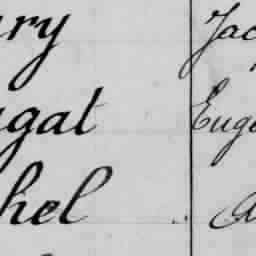 ry Jac
gat Euge
hel A